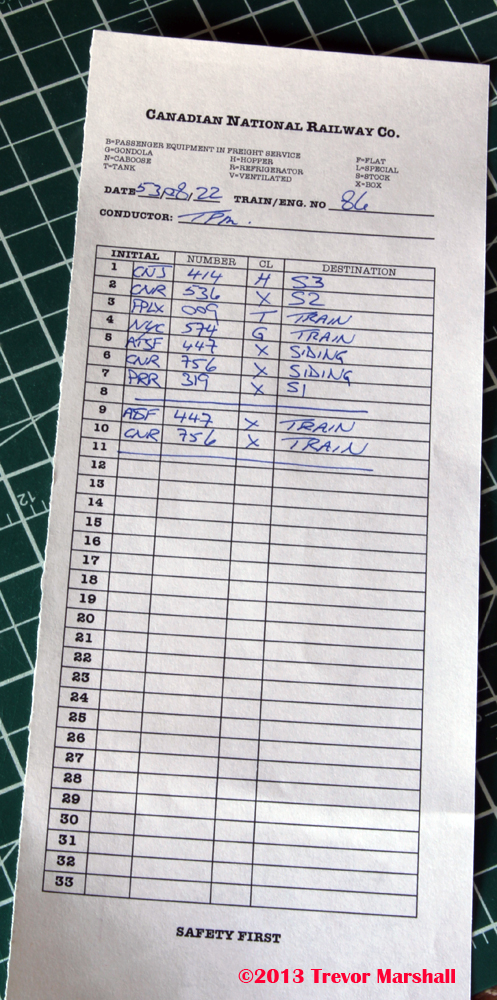 CANADIAN NATIONAL RAILWAY CO.
B=PASSENGER EQUIPMENT IN FREIGHT SERVICE
G=GONDOLA H=HOPPER F=FLAT
N=CABOOSE R=REFRIGERATOR L=SPECIAL
T=TANK V=VENTILATED S=STOCK
X=BOX
DATE 53,08,22 TRAIN/ENG. NO 86
CONDUCTOR: TPM.
INITIAL NUMBER CL DESTINATION
1 CNJ 414 H S3
2 CNR 536 X S2
3 PPLX 009 T TRAIN
4 NYC 574 G TRAIN
5 ATSF 447 X SIDING
6 CNR 756 X SIDING
7 PRR 319 X S1
8
9 ATSF 447 X TRAIN
10 CNR 756 X TRAIN
11
12
13
14
15
16
17
18
19
20
21
22
23
24
25
26
27
28
29
30
31
32
33
SAFETY FIRST
12
©2013 Trevor Marshall